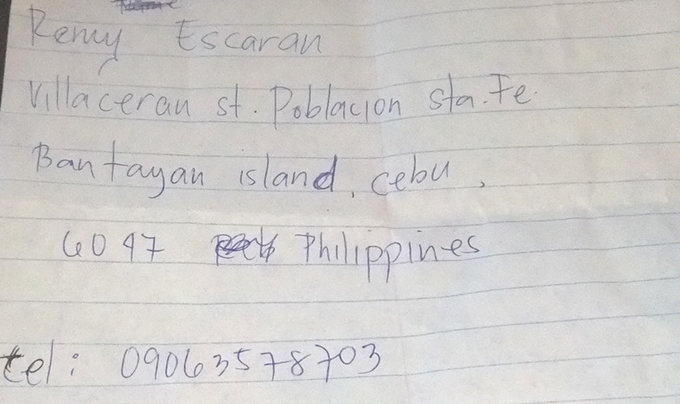 Remy Escaran
Villaceran st. Poblacion sta. Fe.
Bantayan island, cebu,
6047 Philippines
tel: 09063578703